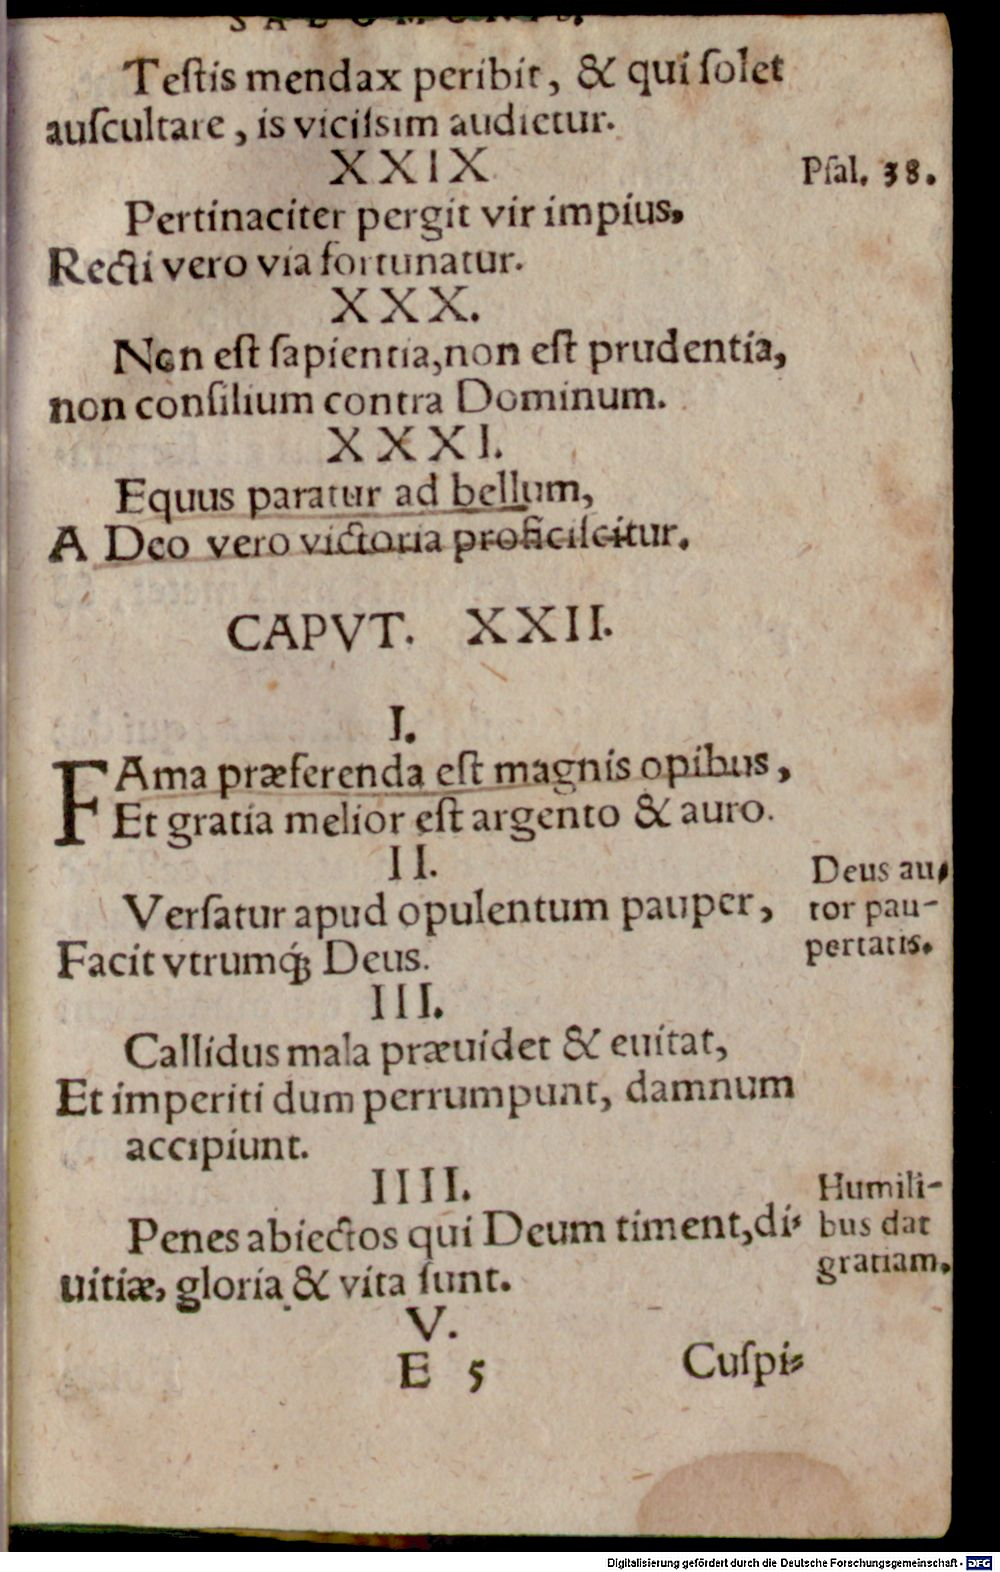 SALOMONIS.
Teſtis mendax peribit, & qui ſolet
auſcultare, is viciſsim audietur.
XXIX
Psal. 38.
Pertinaciter pergit vir impius,
Recti vero via fortunatur.
XXX.
Non eſt ſapientia, non eſt prudentia,
non conſilium contra Dominum.
XXXI.
Equus paratur ad bellum,
A Deo vero victoria proficiſcitur.
CAPVT. XXII.
I.
FAma præferenda eſt magnis opibus,
Et gratia melior eſt argento & auro.
II.
Verſatur apud opulentum pauper,
Facit vtrumq́; Deus.
Deus au-
tor pau-
pertatis.
III.
Callidus mala præuidet & euitat,
Et imperiti dum perrumpunt, damnum
accipiunt.
IIII.
Penes abiectos qui Deum timent, di-
uitiæ, gloria & vita ſunt.
Humili-
bus dat
gratiam.
V.
E 5 Cuſpi-
Digitalisierung gefördert durch die Deutsche Forschungsgemeinschaft - DFG